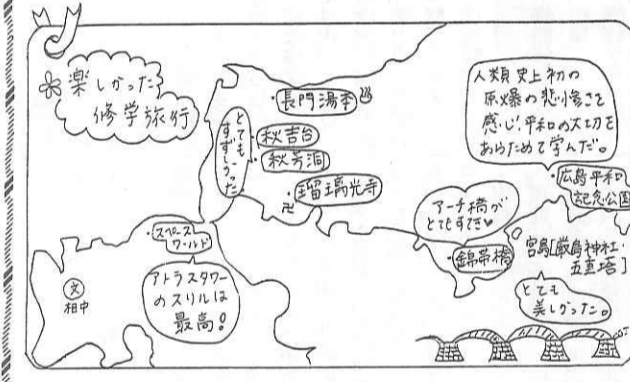 楽しかった
修学旅行
長門湯本
秋吉台
秋芳洞
とても
すずしかった
瑠璃光寺
卍
人類史上初の
原爆の悲惨さを
感じ、平和の大切を
あらためて学んだ。
広島平和
記念公園
アーチ橋が
とてもすてき♥
錦帯橋
宮島[厳島神社・
五重塔]
とても
美しかった。
スペース
ワールド
アトラスタワー
のスリルは
最高!
文
相中